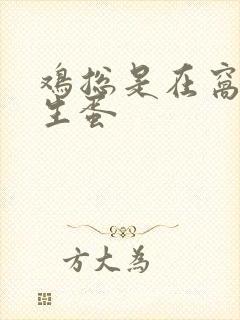 鸡总是在窝
生蛋
方大为